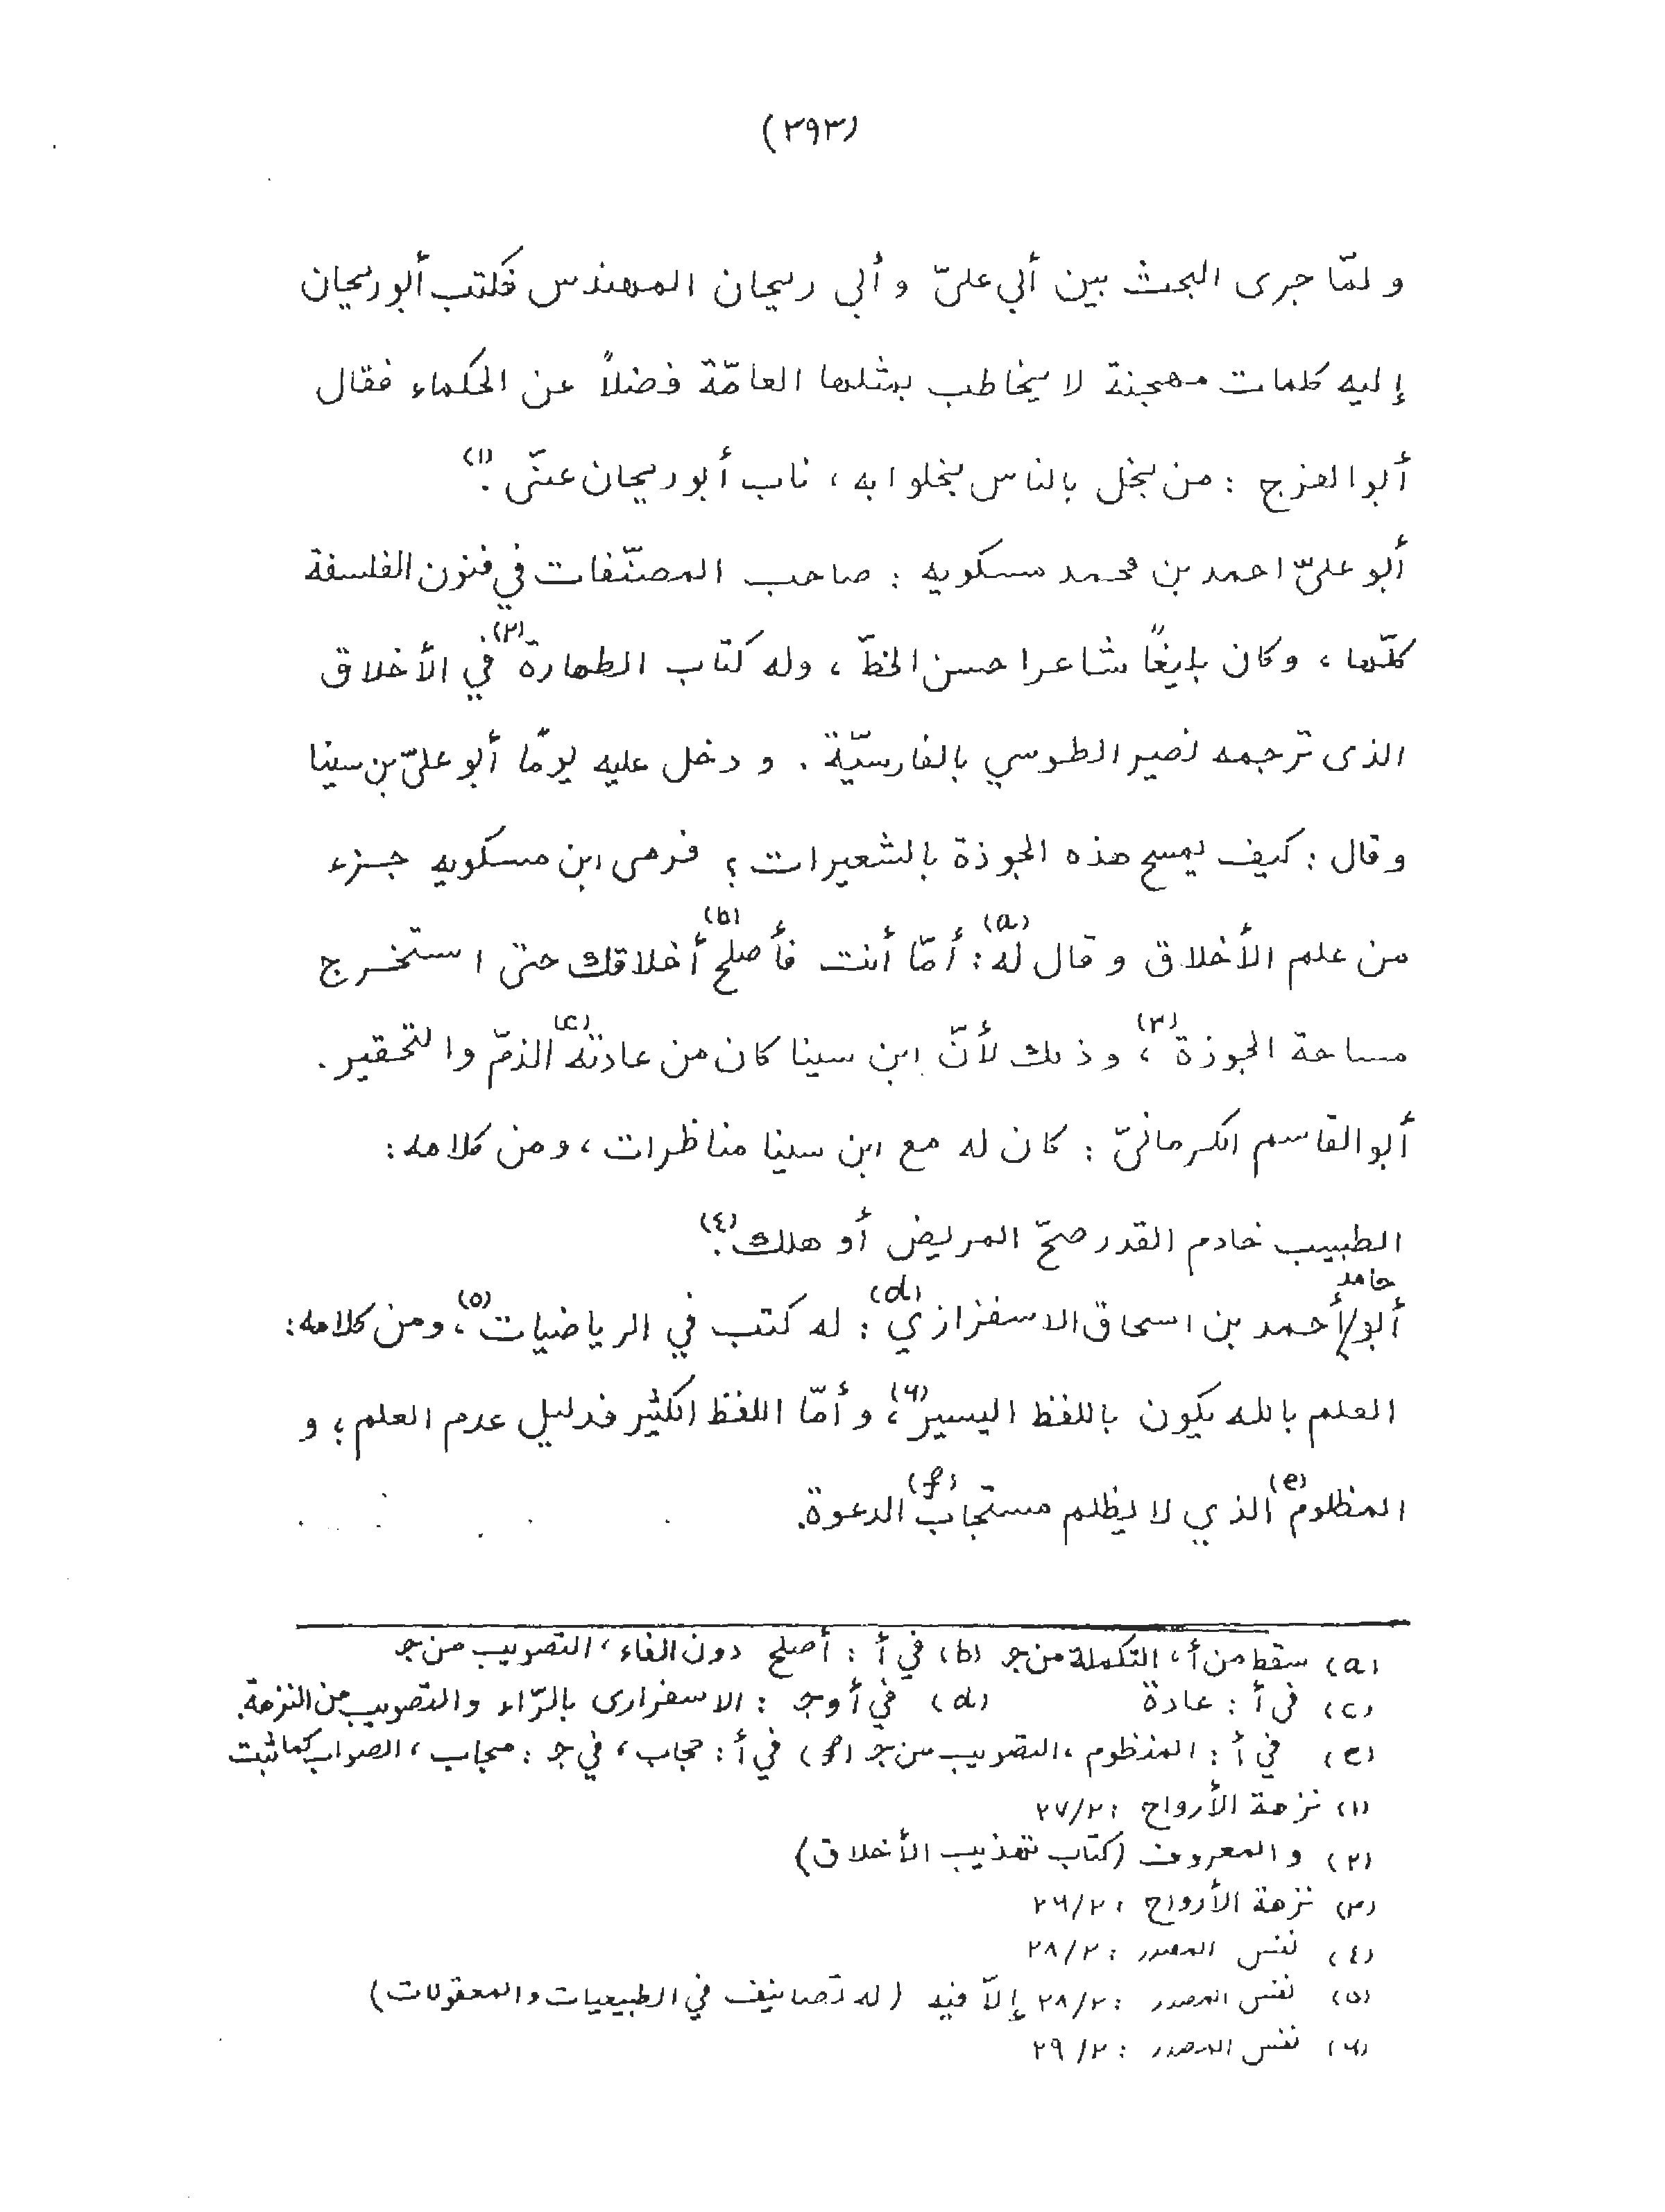 (٢٩٣)
و لمّا جرى البحث بين أبي عليّ و أبي ريحان المهندس فكتب أبو ريحان
إليه كلمات مهجنة لا يخاطب بمثلها العامّة فضلاً عن الحكماء فقال
أبو الفرج : من يخل بالناس يخلوا به ، ناب أبو ريحان عنّي .(١)
أبو عليّ احمد بن محمد مسكويه : صاحب المصنّفات في فنون الفلسفة
كلّها ، وكان بليغًا شاعرا حسن الخطّ ، وله كتاب الطهارة(٢) في الأخلاق
الذى ترجمه نصير الطوسي بالفارسيّة . و دخل عليه يومًا أبو عليّ بن سينا
و قال : كيف يمسح هذه الجوزة بالشعيرات ؟ فرمى ابن مسكويه جزء
من علم الأخلاق و قال له(a) : أمّا أنت فأصلح(b) أخلاقك حتى استخرج
مساحة الجوزة(٣) ، و ذلك لأنّ ابن سينا كان من عادته(c) الذمّ والتحقير .
أبو القاسم الكرمانيّ : كان له مع ابن سينا مناظرات ، ومن كلامه :
الطبيب خادم القدر صحّ المريض أو هلك .(٤)
حامد
أبو/أحمد بن اسحاق الاسفزازي(d) : له كتب في الرياضيات(٥) ، ومن كلامه :
العلم بالله يكون باللفظ اليسير(٦) ، و أمّا اللفظ الكثير فدليل عدم العلم ؛ و
المظلوم(e) الذي لا يظلم مستجاب(f) الدعوة .
(a) سقط من أ ، التكملة من جـ (b) في أ : أصلح دون الفاء ، التصويب من جـ
(c) في أ : عادة (d) في أ و جـ : الاسفرارى بالرّاء والتصويب من النزهة .
(e) في أ : المنظوم ، التصويب من جـ (f) في أ : حجاب ، في جـ : محاب ، الصواب كما ثبت
(١) نزهة الأرواح : ٢٧/٢
(٢) و المعروف (كتاب تهذيب الأخلاق)
(٣) نزهة الأرواح : ٢٦/٢
(٤) نفس المصدر : ٢٨/٢
(٥) نفس المصدر : ٢٨/٢ إلاّ فيه (له تصانيف في الطبيعيات والمعقولات)
(٦) نفس المصدر : ٢٩/٢